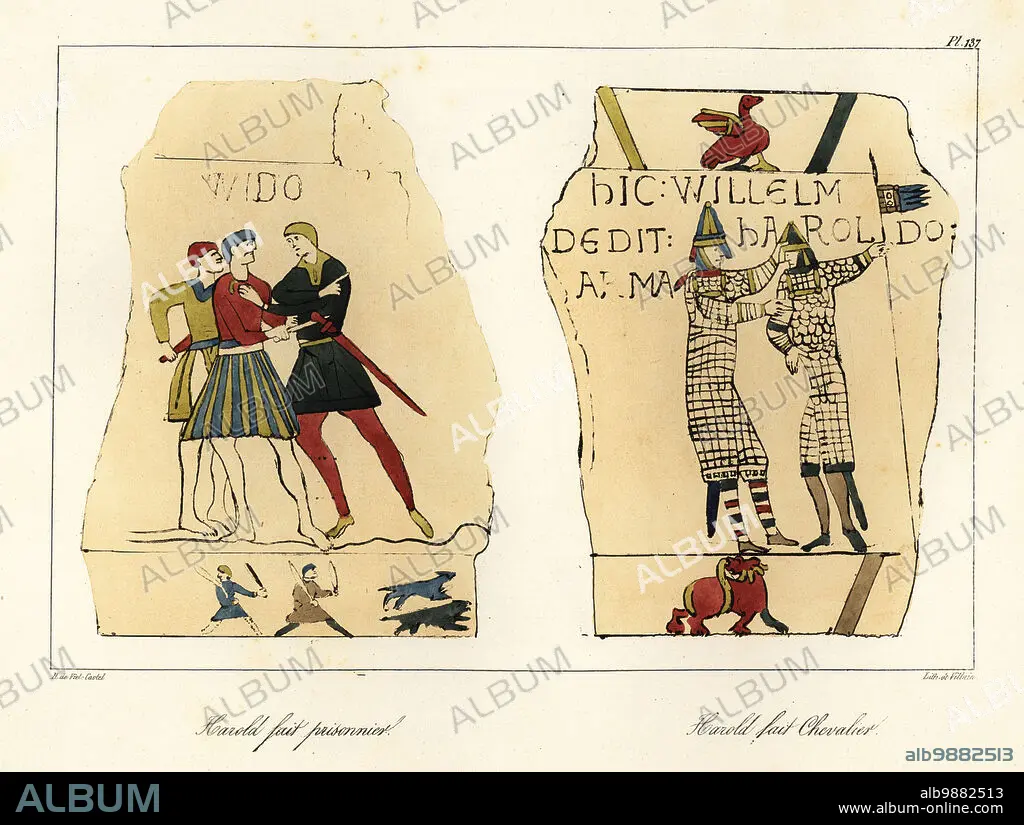 Pl. 137
WIDO
hIC: WILLELM
DEDIT: hAROLDO:
ARMA
H. de Viel-Castel
Lith. de Villain
Harold fait prisonnier.
Harold fait Chevalier.
alb9882513
ALBUM
alb9882513
www.album-online.com